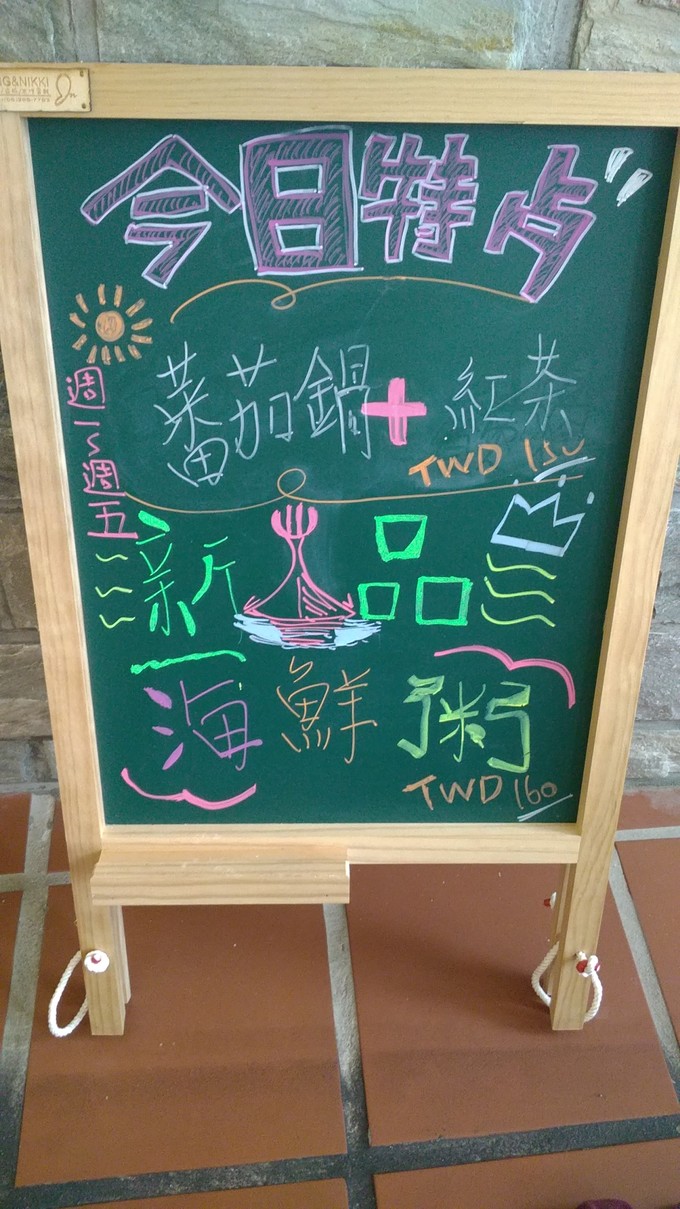 G&NIKKI
今日特
週一~週五
蕃茄鍋+紅茶
TWD 150
新品
海鮮粥
TWD 160